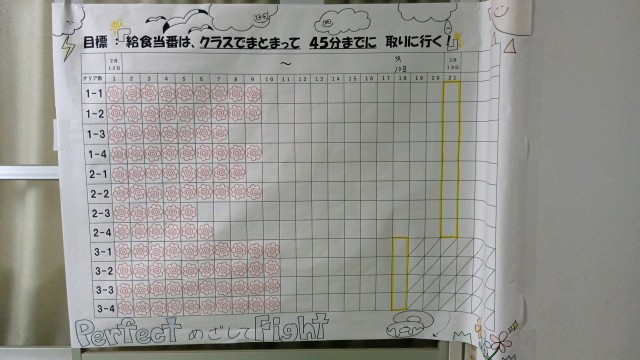 目標：給食当番は、クラスでまとまって 45分までに 取りに行く！
2月 ～ 3月 3月
クリア数 1 2 3 4 5 6 7 8 9 10 11 12 13 14 15 16 17 18 19 20 21
1-1
1-2
1-3
1-4
2-1
2-2
2-3
2-4
3-1
3-2
3-3
3-4
Perfect めざして Fight